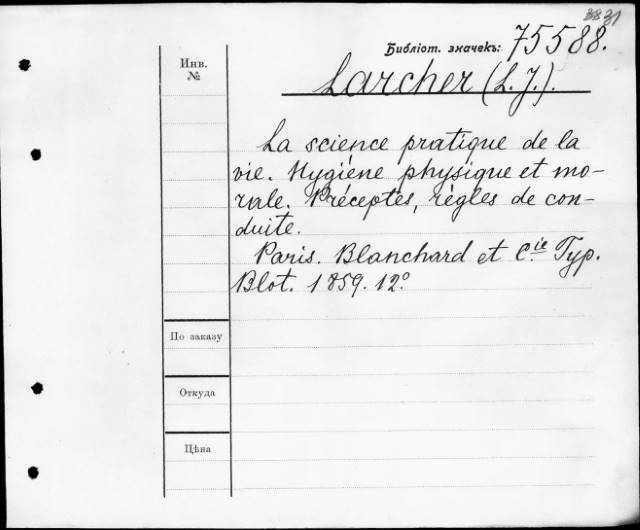 3831
Библіот. значекъ: 75588.
Инв.
№
Larcher (L. J.).
La science pratique de la
vie. Hygiène physique et mo-
rale. Préceptes, règles de con-
duite.
Paris. Blanchard et C.ie Typ.
Blot. 1859. 12°
По заказу
Откуда
Цѣна